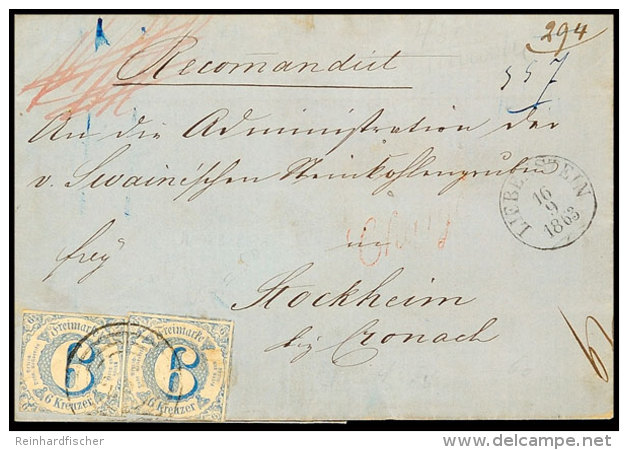 294
557
Recomandirt
An die Administration der
v. Swain'schen Steinkohlengruben
LIEBENSTEIN
16
9
1863
Chargé
frey
in
Stockheim
bei Cronach
Freimarke
6
6 Kreuzer
Freimarke
6
6 Kreuzer
Reinhardfischer
delcampe.net